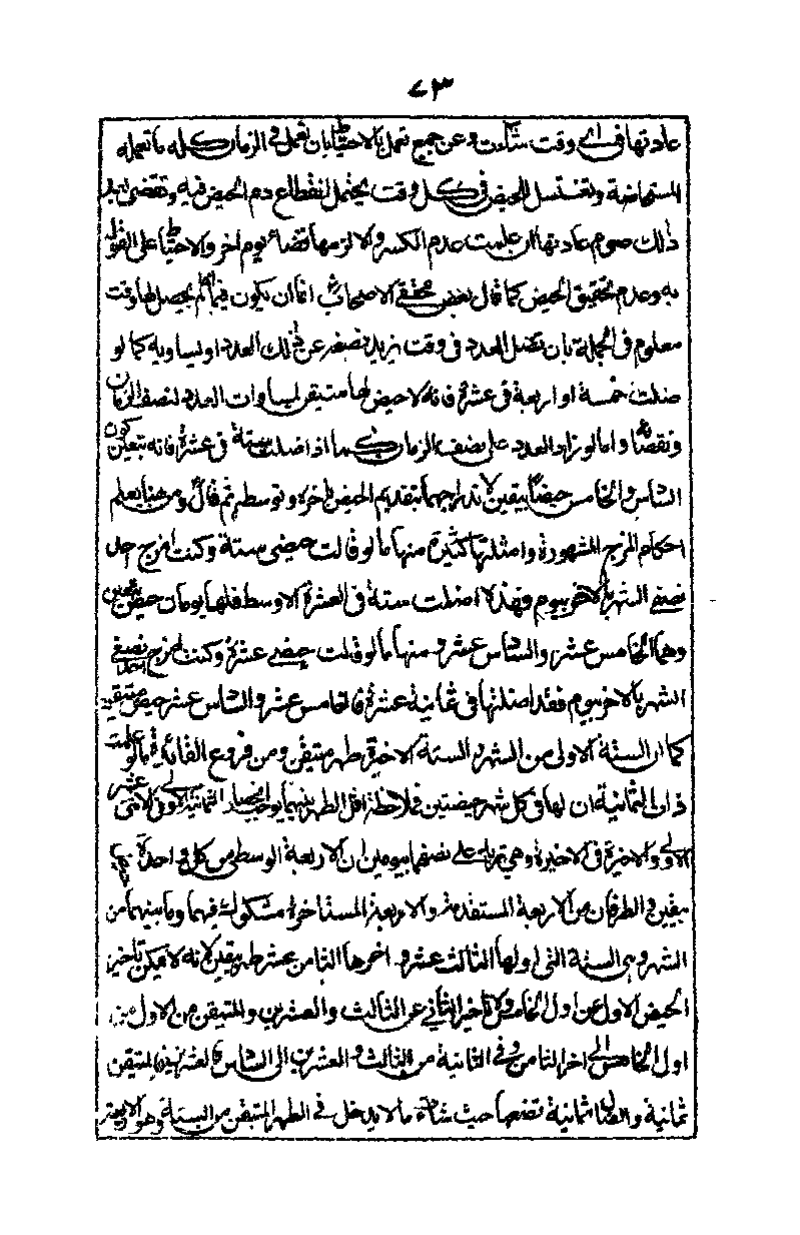 ٧٣
عادتها فى اى وقت شاءت وعن جمع تعمل بالاحتياط بان تعمل فى الزمان كله ما تعمله
المستحاضة وتغتسل للحيض فى كل وقت يحتمل انقطاع دم الحيض فيه وتقضى بعد
ذلك صوم عادتها ان علمت عدم الكسر والا لزمها قضاء يوم اخر والاحتياط على القول
به وعدم تحقيق الحيض كما قال بعض محققى الاصحاب انما ان يكون فيما لم يحصل لها وقت
معلوم فى الجملة بان تضل العدد فى وقت يزيد نصفه عن ذلك العدد او يساويه كما لو
ضلت خمسة او اربعة فى عشرة فانه لا حيض لها متيقن لمساوات العدد لنصف الزمان
ونقصانه واما لو زاد العدد على نصف الزمان كما اذا ضلت ستة فى عشرة فانه يتعين كون
السادس والخامس حيضا بيقين لاندراجهما بتقديم الحيض وتاخره وتوسطه ثم قال ومن هنا يعلم
احكام المزج المشهورة وامثلتها كثيرة منها ما لو قالت حيضى ستة وكنت امزج احد
نصفى الشهر بالاخر بيوم فهذه اضلت ستة فى العشرة الاواسط فلها يومان حيض بيقين
وهما الخامس عشر والسادس عشر ومنها ما لو قالت حيضى عشرة وكنت امزج احد نصفى
الشهر بالاخر بيوم فقد اضلتها فى ثمانية عشرة فالخامس عشر والسادس عشر حيض متيقن
كما ان الستة الاولى من الشهر والستة الاخيرة طهر متيقن ومن فروع الفائدة ما لو علمت
ذات الثمانية ان لها فى كل شهر حيضتين فملاحظة اقل الطهر بينهما يوجب انحصار الثمانية الاولى فى الاثنى عشر
الاولى والاخرة فى الاخيرة وهى تزيد على نصفها بيومين ان الاربعة الوسطى من كل واحدة حيض
بيقين والطرفان من الاربعة المستقدمة والاربعة المستاخرة مشكوك فيهما وما بينهما من
الشهر وهى الستة التى اولها الثالث عشر واخرها الثامن عشر طهر بيقين لانه لا يمكن تاخير
الحيض الاول عن اول الخامس ولا تاخير الثانى عن الثالث والعشرين والمتيقن من الاول من
اول الخامس الى اخر الثامن وفى الثانية من الثالث والعشرين الى السادس والعشرين فالمتيقن
ثمانية والضال ثمانية تضعها حيث شاءت ما لا يدخل فى الطهر المتيقن من الستة وهو الاربعة